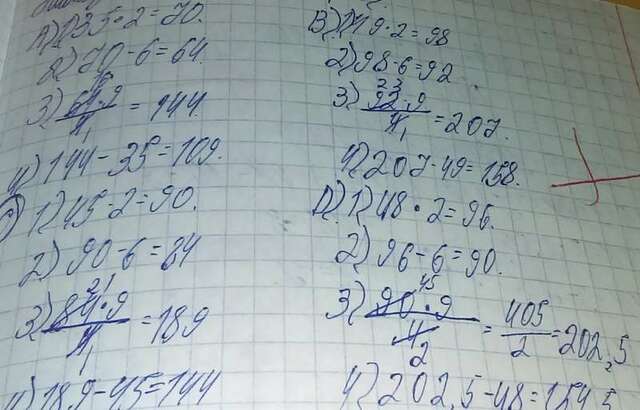 А) 1) 35·2=70.
2) 70-6=64.
3) 64·9/4 = 144.
4) 144-35=109.
1) 45·2=90.
2) 90-6=84
21
3) 84·9/4 1 =189
4) 189-45=144
В) 1) 49·2=98
2) 98-6=92
23
3) 92·9/4 1 =207.
4) 207-49=158.
D) 1) 48·2=96.
2) 96-6=90.
45
3) 90·9/4 2 = 405/2 =202,5
4) 202,5-48=154,5